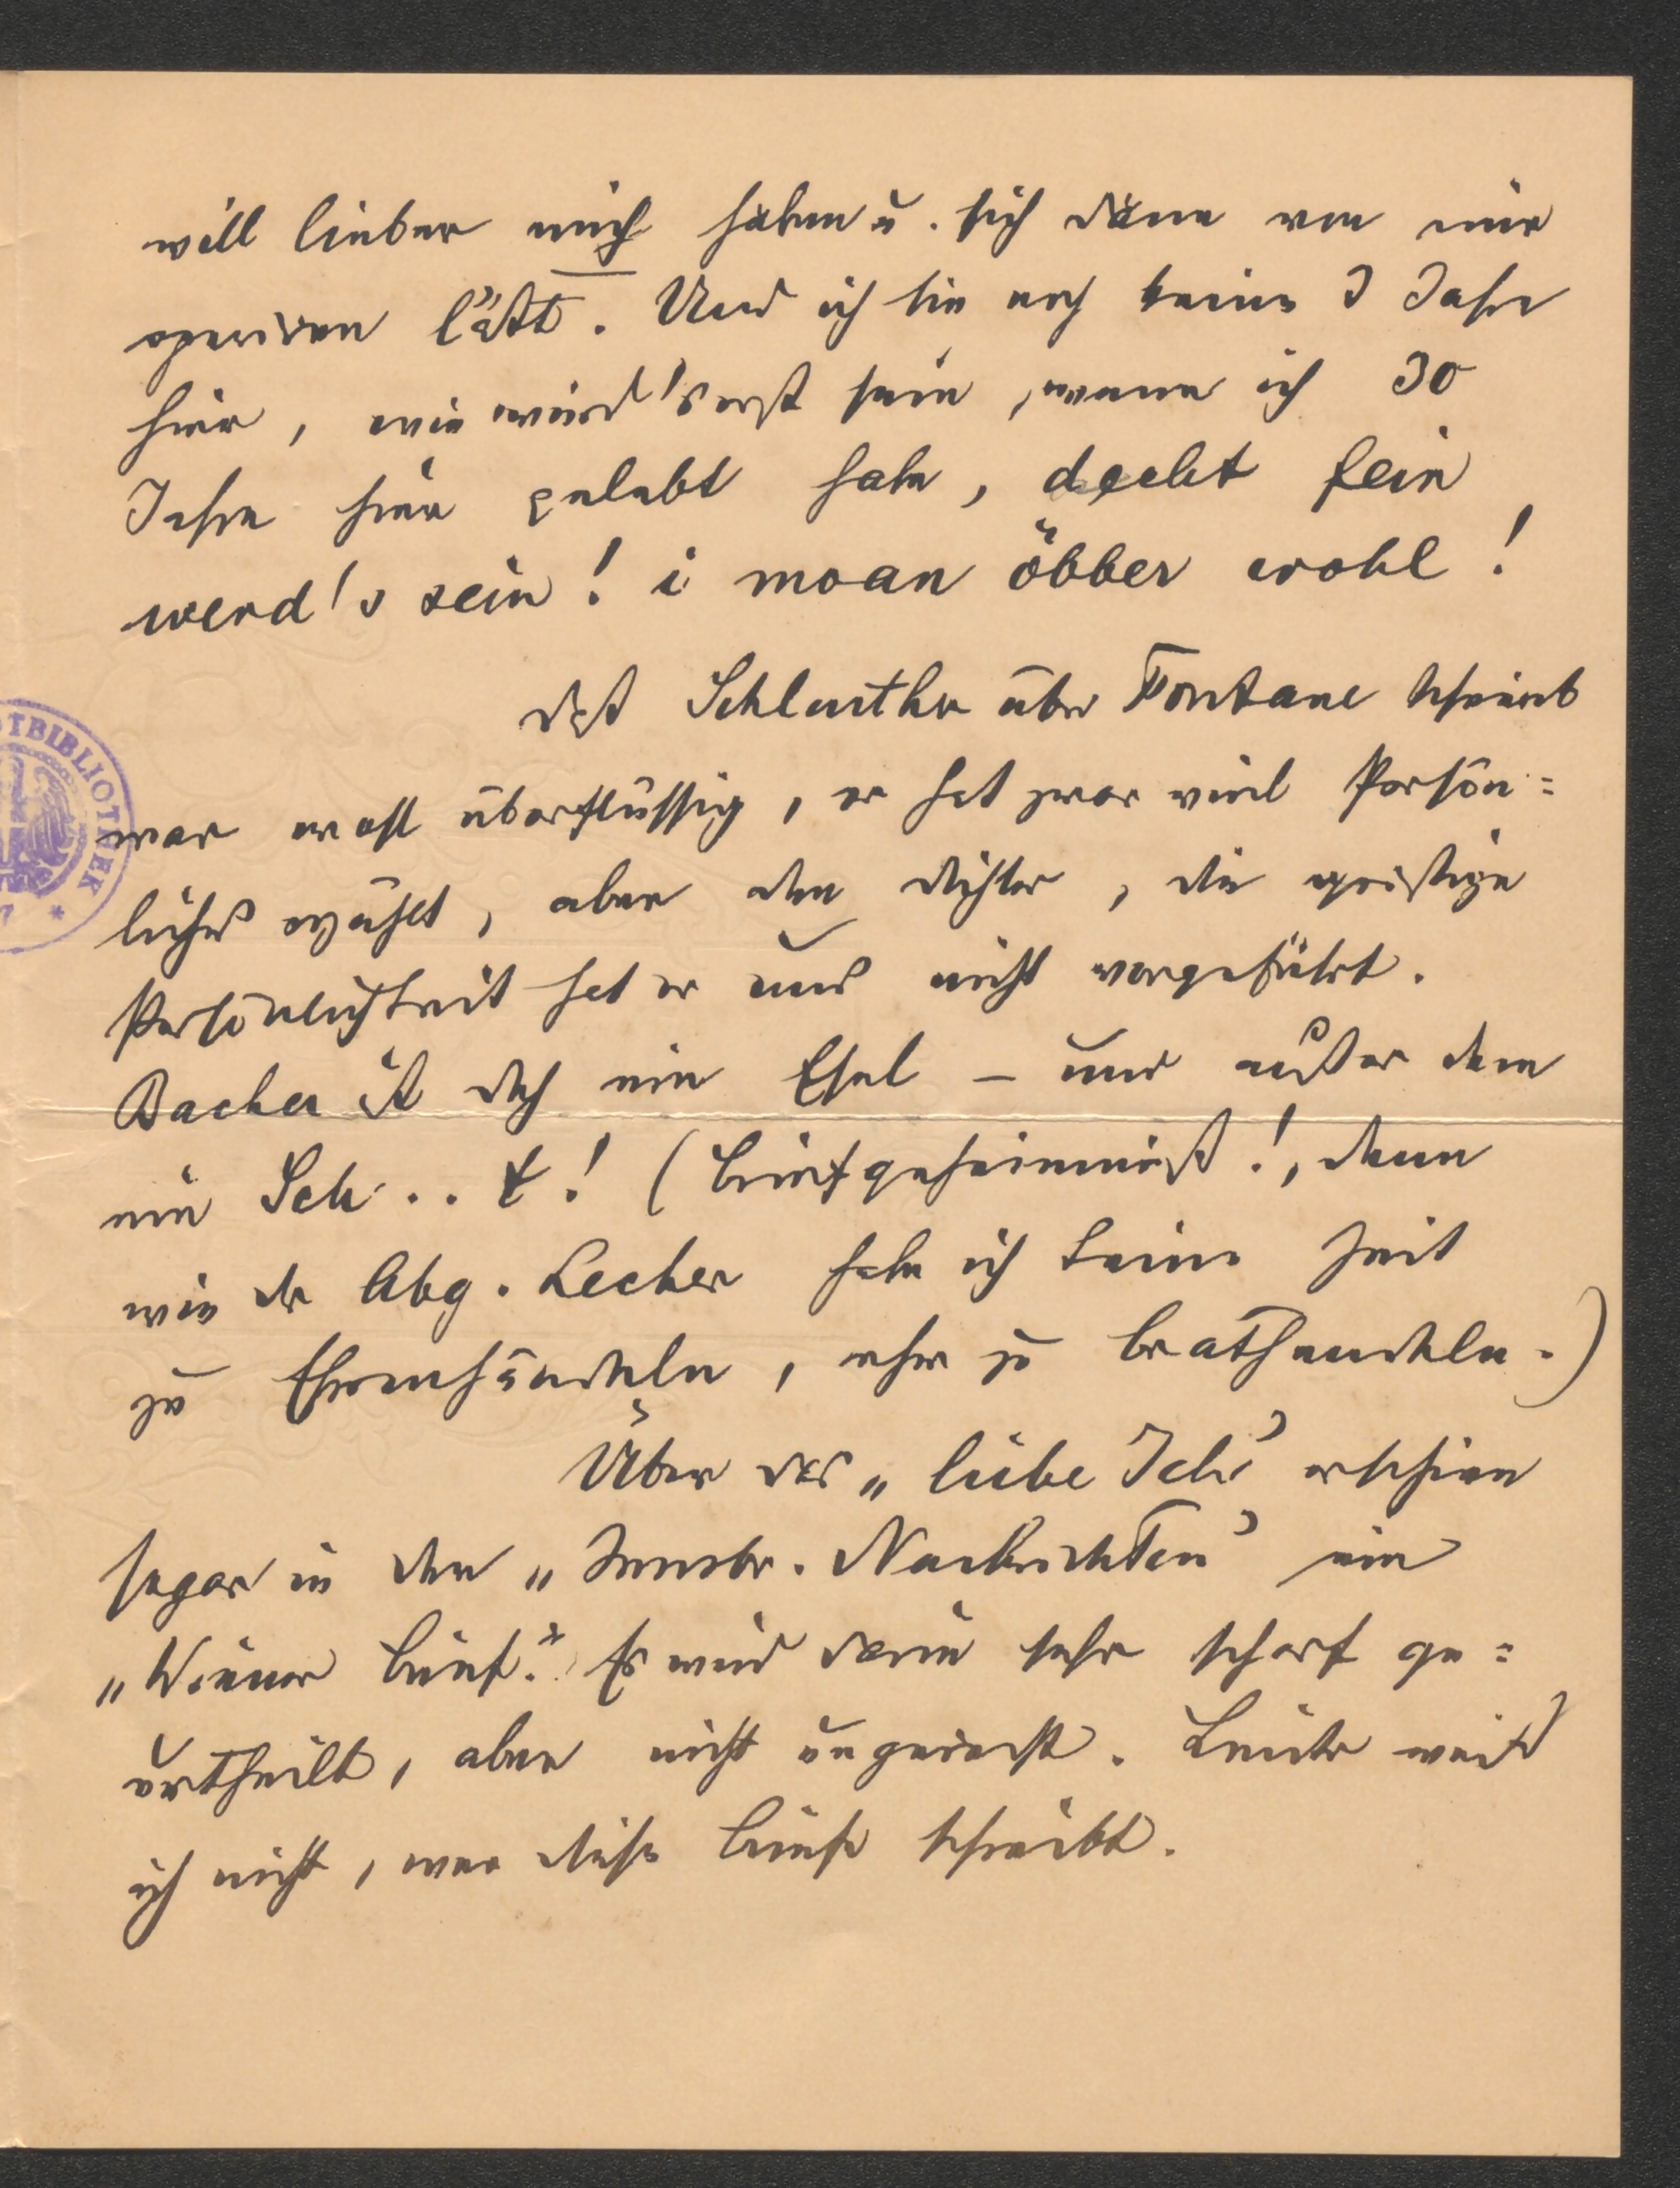 will lieber mich haben u. sich dann von mir
operiren läßt. Und ich bin noch keine 3 Jahre
hier, wie wird's erst sein, wenn ich 30
Jahre hier gelebt habe, decht fein
werd's sein! i moan öbber wohl!
Daß Schlenther über Fontane schreibt
war wohl überflüssig, er hat zwar viel Persön=
liches erzählt, aber den Dichter, die geistige
Persönlichkeit hat er uns nicht vorgeführt.
Bacher ist doch ein Esel – und außer dem
ein Sch...t! (Briefgeheimniß!, denn
wie der Abg. Lecher habe ich keine Zeit
zu Ehrenhändeln, eher zu Brathendeln.)
Über das „liebe Ich" erschien
sogar in den „Innsbr. Nachrichten" ein
„Wiener Brief". Es wird darin sehr scharf ge=
urtheilt, aber nicht ungerecht. Leider weiß
ich nicht, wer diese Briefe schreibt.
TBIBLIOTHEK